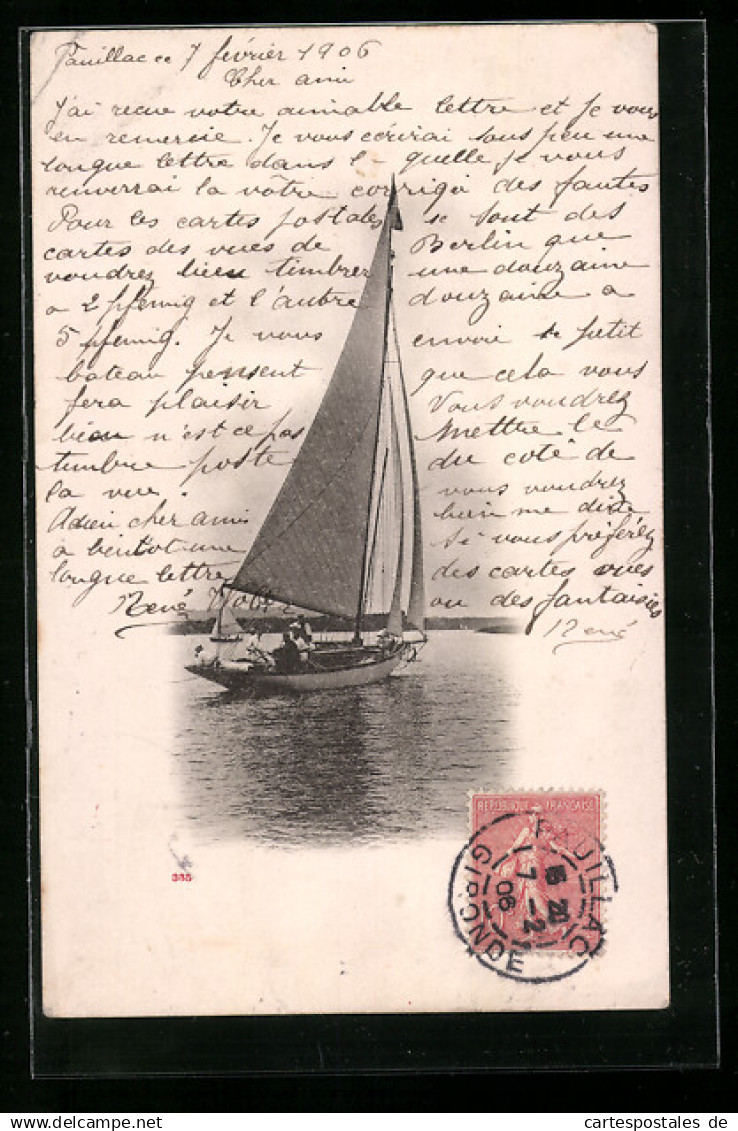 Pauillac ce 7 février 1906
Cher ami
J'ai recue votre aimable lettre et je vous
en remercie. Je vous écrirai sous peu une
longue lettre dans l- quelle je vous
renverrai la vôtre corrigé des fautes
Pour les cartes postales se sont des
cartes des vues de Berlin que
voudrez bien timbrer une douzaine
a 2 pfennig et l'autre douzaine a
5 pfennig. Je vous envoie petit
bateau pensent que cela vous
fera plaisir Vous voudrez
bien n'est ce pas Mettre le
timbre poste du coté de
la vue. vous voudrez
bien me dire
Adieu cher ami si vous préférez
a bientot une des cartes vues
longue lettre ou des fantaisies
René René
385
REPUBLIQUE FRANÇAISE
PAUILLAC
7 -2
06
GIRONDE
cartespostales.de